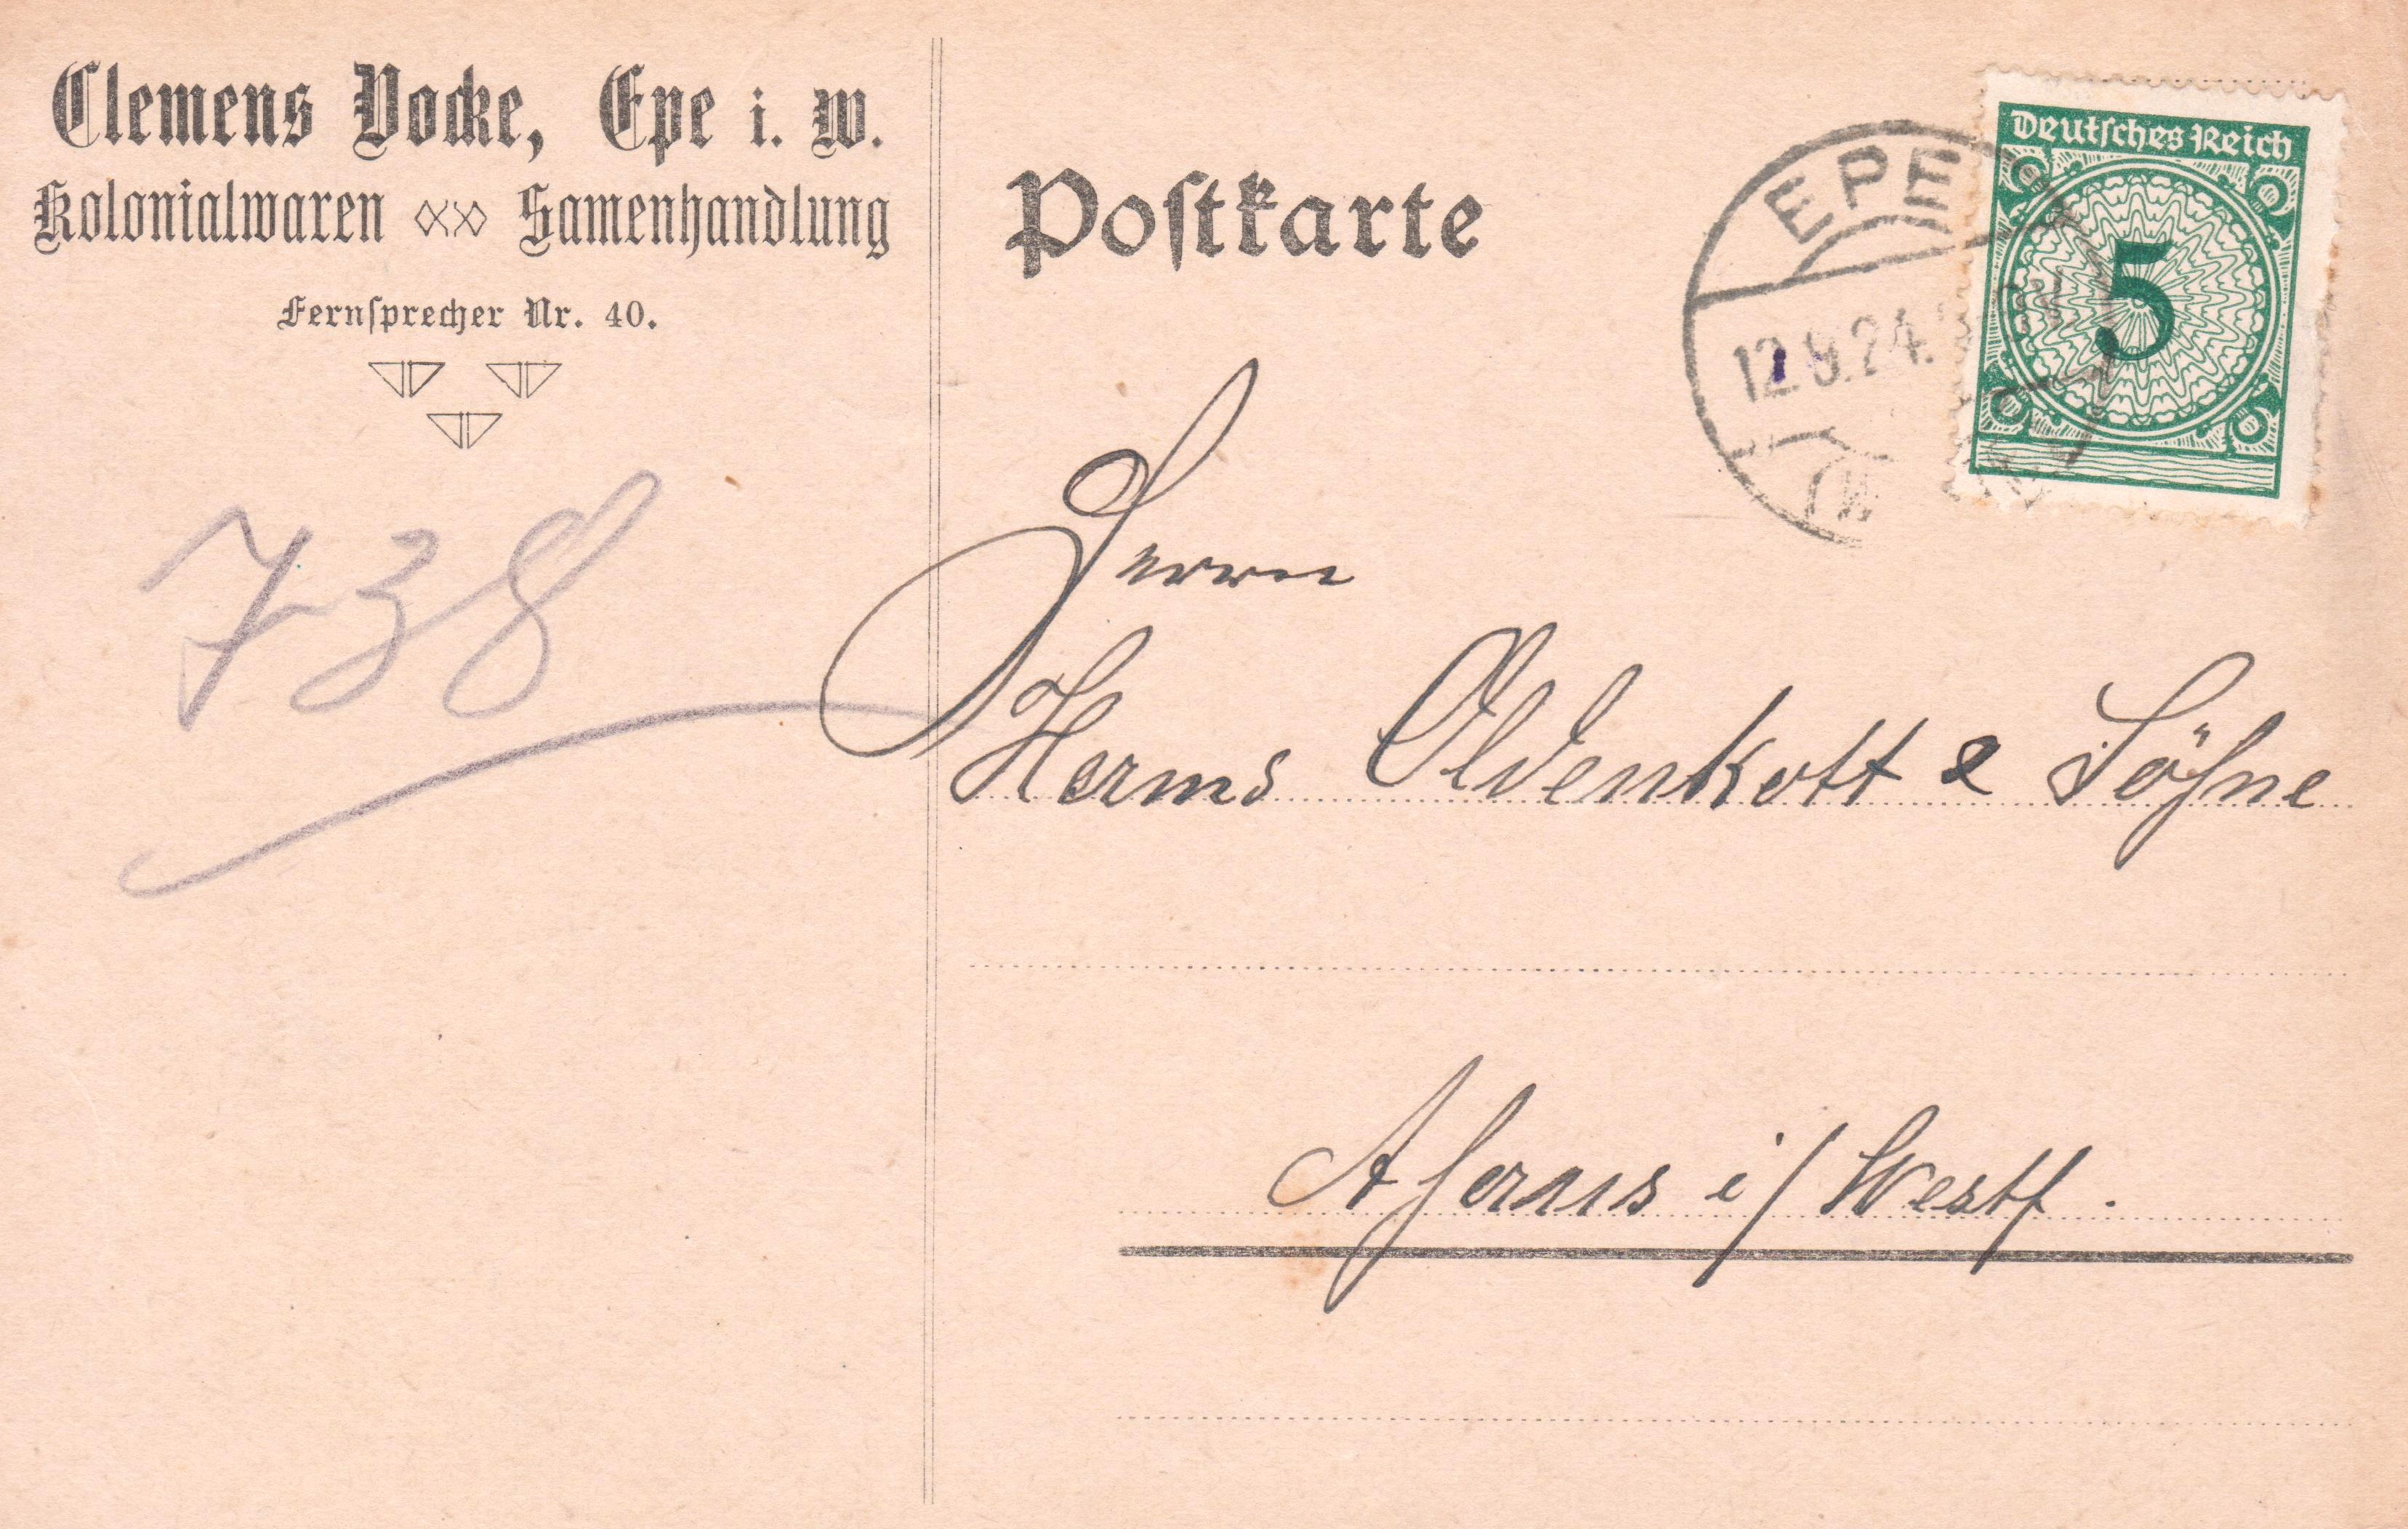 Clemens Vocke, Epe i. W.
Kolonialwaren Samenhandlung
Fernsprecher Nr. 40.
738
Postkarte
EPE
24.
Deutsches Reich
5
Herrn
Herms Oldenkott & Söhne
Ahaus i/Westf.